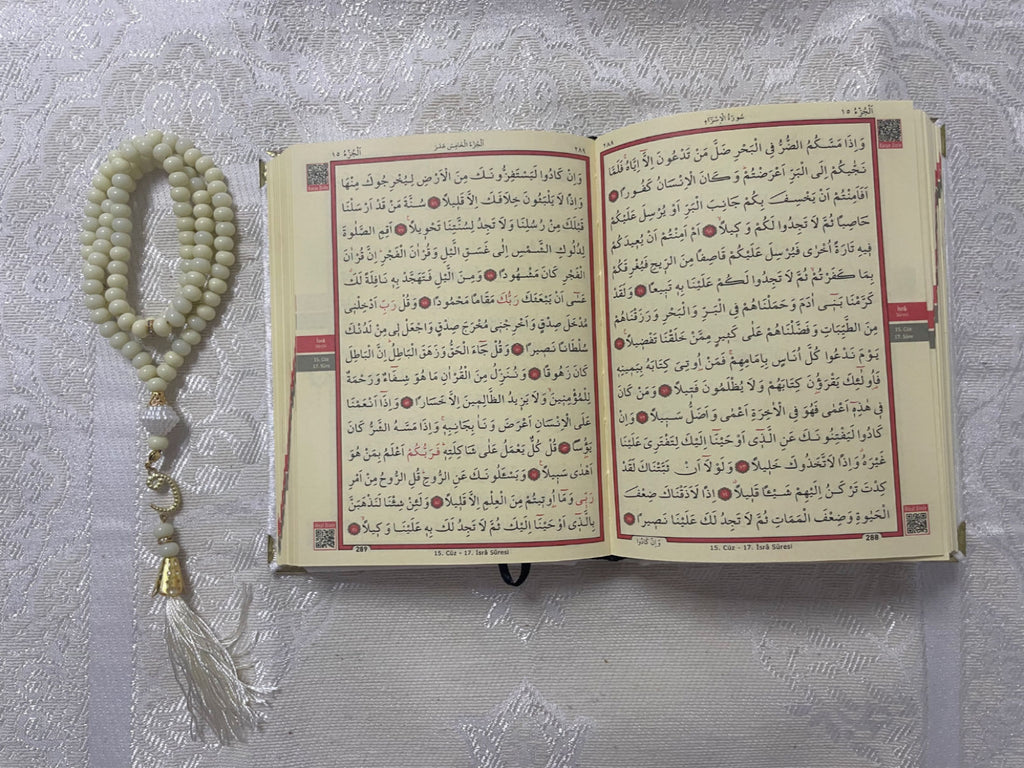 اَلْجُزْءُ ١٥
سُورَةُ الْاِسْرَاءِ
٢٨٨
وَاِذَا مَسَّكُمُ الضُّرُّ فِي الْبَحْرِ ضَلَّ مَنْ تَدْعُونَ اِلَّٓا اِيَّاهُۚ فَلَمَّا
نَجّٰيكُمْ اِلَى الْبَرِّ اَعْرَضْتُمْۜ وَكَانَ الْاِنْسَانُ كَفُورًا
اَفَاَمِنْتُمْ اَنْ يَخْسِفَ بِكُمْ جَانِبَ الْبَرِّ اَوْ يُرْسِلَ عَلَيْكُمْ
حَاصِبًا ثُمَّ لَا تَجِدُوا لَكُمْ وَكِيلًاۙ اَمْ اَمِنْتُمْ اَنْ يُعِيدَكُمْ
فِيهِ تَارَةً اُخْرٰى فَيُرْسِلَ عَلَيْكُمْ قَاصِفًا مِنَ الرِّيحِ فَيُغْرِقَكُمْ
بِمَا كَفَرْتُمْۙ ثُمَّ لَا تَجِدُوا لَكُمْ عَلَيْنَا بِهِ تَبِيعًا وَلَقَدْ
كَرَّمْنَا بَنِٓي اٰدَمَ وَحَمَلْنَاهُمْ فِي الْبَرِّ وَالْبَحْرِ وَرَزَقْنَاهُمْ
مِنَ الطَّيِّبَاتِ وَفَضَّلْنَاهُمْ عَلٰى كَثِيرٍ مِمَّنْ خَلَقْنَا تَفْضِيلًا۟
يَوْمَ نَدْعُوا كُلَّ اُنَاسٍ بِاِمَامِهِمْۚ فَمَنْ اُوتِيَ كِتَابَهُ بِيَمِينِهِ
فَاُو۬لٰٓئِكَ يَقْرَؤُ۫نَ كِتَابَهُمْ وَلَا يُظْلَمُونَ فَتِيلًا وَمَنْ كَانَ
فِي هٰذِهِٓ اَعْمٰى فَهُوَ فِي الْاٰخِرَةِ اَعْمٰى وَاَضَلُّ سَبِيلًا وَاِنْ
كَادُوا لَيَفْتِنُونَكَ عَنِ الَّذِٓي اَوْحَيْنَٓا اِلَيْكَ لِتَفْتَرِيَ عَلَيْنَا
غَيْرَهُۗ وَاِذًا لَاتَّخَذُوكَ خَلِيلًا وَلَوْلَٓا اَنْ ثَبَّتْنَاكَ لَقَدْ
كِدْتَ تَرْكَنُ اِلَيْهِمْ شَيْـًٔا قَلِيلًاۗ اِذًا لَاَذَقْنَاكَ ضِعْفَ
الْحَيٰوةِ وَضِعْفَ الْمَمَاتِ ثُمَّ لَا تَجِدُ لَكَ عَلَيْنَا نَصِيرًا
وَاِنْ كَادُوا
15. Cüz - 17. İsrâ Sûresi
288
İsrâ
Sûresi
15. Cüz
17. Sûre
٢٨٩
اَلْجُزْءُ الْخَامِسُ عَشَرَ
اَلْجُزْءُ ١٥
وَاِنْ كَادُوا لَيَسْتَفِزُّونَكَ مِنَ الْاَرْضِ لِيُخْرِجُوكَ مِنْهَا
وَاِذًا لَا يَلْبَثُونَ خِلَافَكَ اِلَّا قَلِيلًا سُنَّةَ مَنْ قَدْ اَرْسَلْنَا
قَبْلَكَ مِنْ رُسُلِنَا وَلَا تَجِدُ لِسُنَّتِنَا تَحْوِيلًا۟ اَقِمِ الصَّلٰوةَ
لِدُلُوكِ الشَّمْسِ اِلٰى غَسَقِ الَّيْلِ وَقُرْاٰنَ الْفَجْرِۜ اِنَّ قُرْاٰنَ
الْفَجْرِ كَانَ مَشْهُودًا وَمِنَ الَّيْلِ فَتَهَجَّدْ بِهِ نَافِلَةً لَكَۗ
عَسٰٓى اَنْ يَبْعَثَكَ رَبُّكَ مَقَامًا مَحْمُودًا وَقُلْ رَبِّ اَدْخِلْنِي
مُدْخَلَ صِدْقٍ وَاَخْرِجْنِي مُخْرَجَ صِدْقٍ وَاجْعَلْ لِي مِنْ لَدُنْكَ
سُلْطَانًا نَصِيرًا وَقُلْ جَٓاءَ الْحَقُّ وَزَهَقَ الْبَاطِلُۜ اِنَّ الْبَاطِلَ
كَانَ زَهُوقًا وَنُنَزِّلُ مِنَ الْقُرْاٰنِ مَا هُوَ شِفَٓاءٌ وَرَحْمَةٌ
لِلْمُؤْمِنِينَۙ وَلَا يَزِيدُ الظَّالِمِينَ اِلَّا خَسَارًا وَاِذَٓا اَنْعَمْنَا
عَلَى الْاِنْسَانِ اَعْرَضَ وَنَاٰ بِجَانِبِهِۚ وَاِذَا مَسَّهُ الشَّرُّ كَانَ
يَؤُ۫سًا قُلْ كُلٌّ يَعْمَلُ عَلٰى شَاكِلَتِهِۜ فَرَبُّكُمْ اَعْلَمُ بِمَنْ هُوَ
اَهْدٰى سَبِيلًا۟ وَيَسْـَٔلُونَكَ عَنِ الرُّوحِۜ قُلِ الرُّوحُ مِنْ اَمْرِ
رَبِّي وَمَٓا اُو۫تِيتُمْ مِنَ الْعِلْمِ اِلَّا قَلِيلًا وَلَئِنْ شِئْنَا لَنَذْهَبَنَّ
بِالَّذِٓي اَوْحَيْنَٓا اِلَيْكَ ثُمَّ لَا تَجِدُ لَكَ بِهِ عَلَيْنَا وَكِيلًاۙ
289
15. Cüz - 17. İsrâ Sûresi
İsrâ
Sûresi
15. Cüz
17. Sûre